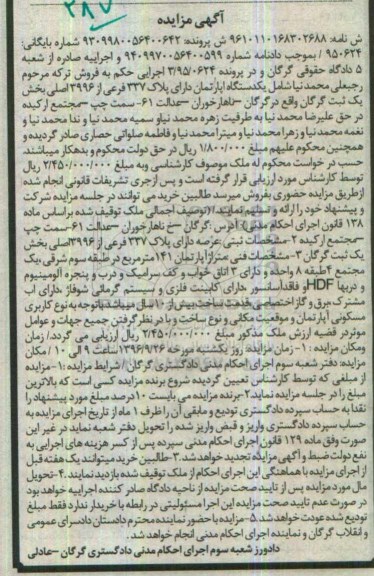 ۲۸۷
آگهی مزایده
ش نامه: ۹۶۱۰۱۱۰۱۶۸۳۰۲۶۸۸ ش پرونده: ۹۳۰۹۹۸۰۰۵۶۴۰۰۶۴۲ شماره بایگانی:
۹۵۰۶۲۴ / بموجب دادنامه شماره ۹۴۰۹۹۷۰۰۵۶۴۰۰۵۹۹ و اجراییه صادره از شعبه
۵ دادگاه حقوقی گرگان و در پرونده ۳/۹۵۰۶۲۴ اجرایی حکم به فروش ترکه مرحوم
رجبعلی محمدنیا شامل یکدستگاه اپارتمان دارای پلاک ۳۳۷ فرعی از ۳۹۹۶ اصلی بخش
یک ثبت گرگان واقع در گرگان –ناهارخوران –عدالت ۶۱– سمت چپ –مجتمع ارکیده
در حق علیرضا محمد نیا به طرفیت زهره محمد نیاو سمیه محمد نیا و ندا محمد نیا و
نغمه محمد نیا و زهرا محمد نیا و میترا محمد نیا و فاطمه صلواتی حصاری صادر گردیده و
همچنین محکوم علیهم مبلغ ۱/۸۰۰/۰۰۰ ریال در حق دولت محکوم و بدهکار میباشند.
حسب در خواست محکوم له ملک موصوف کارشناسی وبه مبلغ ۲/۴۵۰/۰۰۰/۰۰۰ ریال
توسط کارشناس مورد ارزیابی قرار گرفته است و پس ازجری تشریفات قانونی انجام شده
ازطریق مزایده حضوری بفروش میرسد طالبین خرید می توانند در جلسه مزایده شرکت
و پیشنهاد خود را ارائه و تسلیم نمایند. (توصیف اجمالی ملک توقیف شده براساس ماده
۱۳۸ قانون اجرای احکام مدنی): آدرس :گرگان –خ ناهارخوران –عدالت ۶۱–سمت چپ
–مجتمع ارکیده ۲–مشخصات ثبتی:عرصه دارای پلاک ۳۳۷ فرعی از ۳۹۹۶ اصلی بخش
یک ثبت گرگان ۳–مشخصات فنی:متراژ آپارتمان ۱۴۱ مترمربع در طبقه سوم شرقی ،یک
مجتمع ۴طبقه ۸ واحده و دارای ۳ اتاق خواب و کف سرامیک و درب و پنجره آلومینیوم
و دربها HDF و فاقد آسانسور ،دارای کابینت فلزی و سیستم گرمائی شوفاژ ،دارای آب
مشترک ،برق و گاز اختصاصی ،قدمت ساخت بیش از ۱۰ سال میباشد باتوجه به نوع کاربری
مسکونی آپارتمان و موقعیت مکانی و نوع ساخت و با در نظر گرفتن جمیع جهات و عوامل
موثردر قضیه ارزش ملک مذکور مبلغ ۲/۴۵۰/۰۰۰/۰۰۰ ریال ارزیابی می گردد./ زمان
ومکان مزایده : ۱– زمان مزایده: روز یکشنبه مورخه ۱۳۹۶/۹/۲۶ساعت ۹ الی ۱۰ / مکان
مزایده: دفتر شعبه سوم اجرای احکام مدنی دادگستری گرگان / شرایط مزایده :۱–مزایده
از مبلغی که توسط کارشناس تعیین گردیده شروع برنده مزایده کسی است که بالاترین
مبلغ را در جلسه مزایده نماید.۲–برنده مزایده می بایست ۱۰درصد مبلغ مورد پیشنهاد را
نقدا به حساب سپرده دادگستری تودیع و مابقی آن را ظرف ۱ ماه از تاریخ اجرای مزایده به
حساب سپرده دادگستری واریز و قبض واریز شده را تحویل دفتر شعبه نماید در غیر این
صورت وفق ماده ۱۲۹ قانون اجرای احکام مدنی سپرده پس از کسر هزینه های اجرایی به
نفع دولت ضبط و آگهی مزایده تجدید خواهد شد.۳–طالبین خرید میتوانند یک هفته قبل
از اجرای مزایده با هماهنگی این اجرای احکام از ملک توقیف شده بازدید نمایند.۴–تحویل
مال مورد مزایده پس از تایید صحت مزایده از ناحیه دادگاه صادر کننده اجراییه خواهد بود
در صورت عدم تایید صحت مزایده این اجرا مسئولیتی در رابطه با خریدار ندارد فقط مبلغ
تودیع شده عودت خواهد شد.۵–مزایده با حضور نماینده محترم دادستان دادسرای عمومی
و انقلاب گرگان و نماینده اجرای احکام مدنی انجام خواهد شد.
دادورز شعبه سوم اجرای احکام مدنی دادگستری گرگان –عادلی